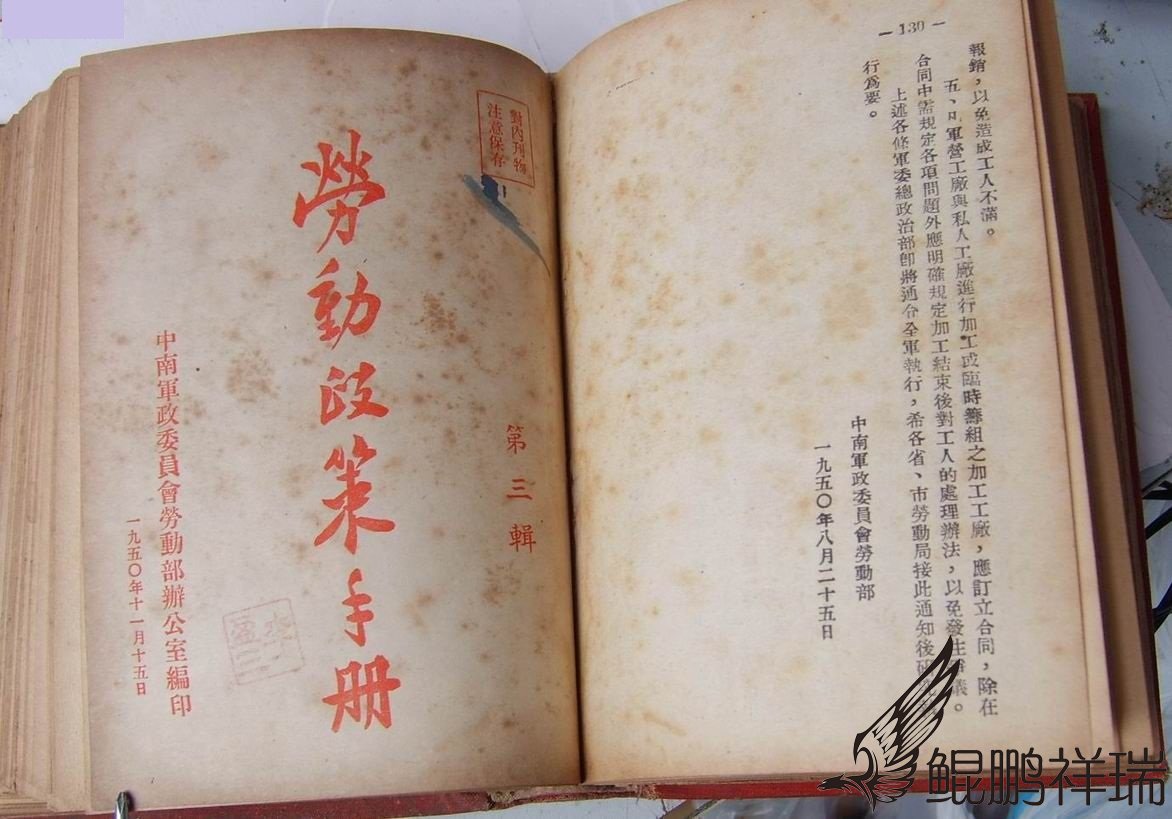 — 130 —
報銷，以免造成工人不滿。
五、凡軍營工廠與私人工廠進行加工或臨時籌組之加工工廠，應訂立合同，除在
合同中需規定各項問題外應明確規定加工結束後對工人的處理辦法，以免發生爭議。
上述各條軍委總政治部卽將通令全軍執行，希各省、市勞動局接此通知後研究
行爲要。
中南軍政委員會勞動部
一九五〇年八月二十五日
對內刊物
注意保存
第三輯
勞動政策手册
中南軍政委員會勞動部辦公室編印
一九五〇年十一月十五日
鲲鹏祥瑞